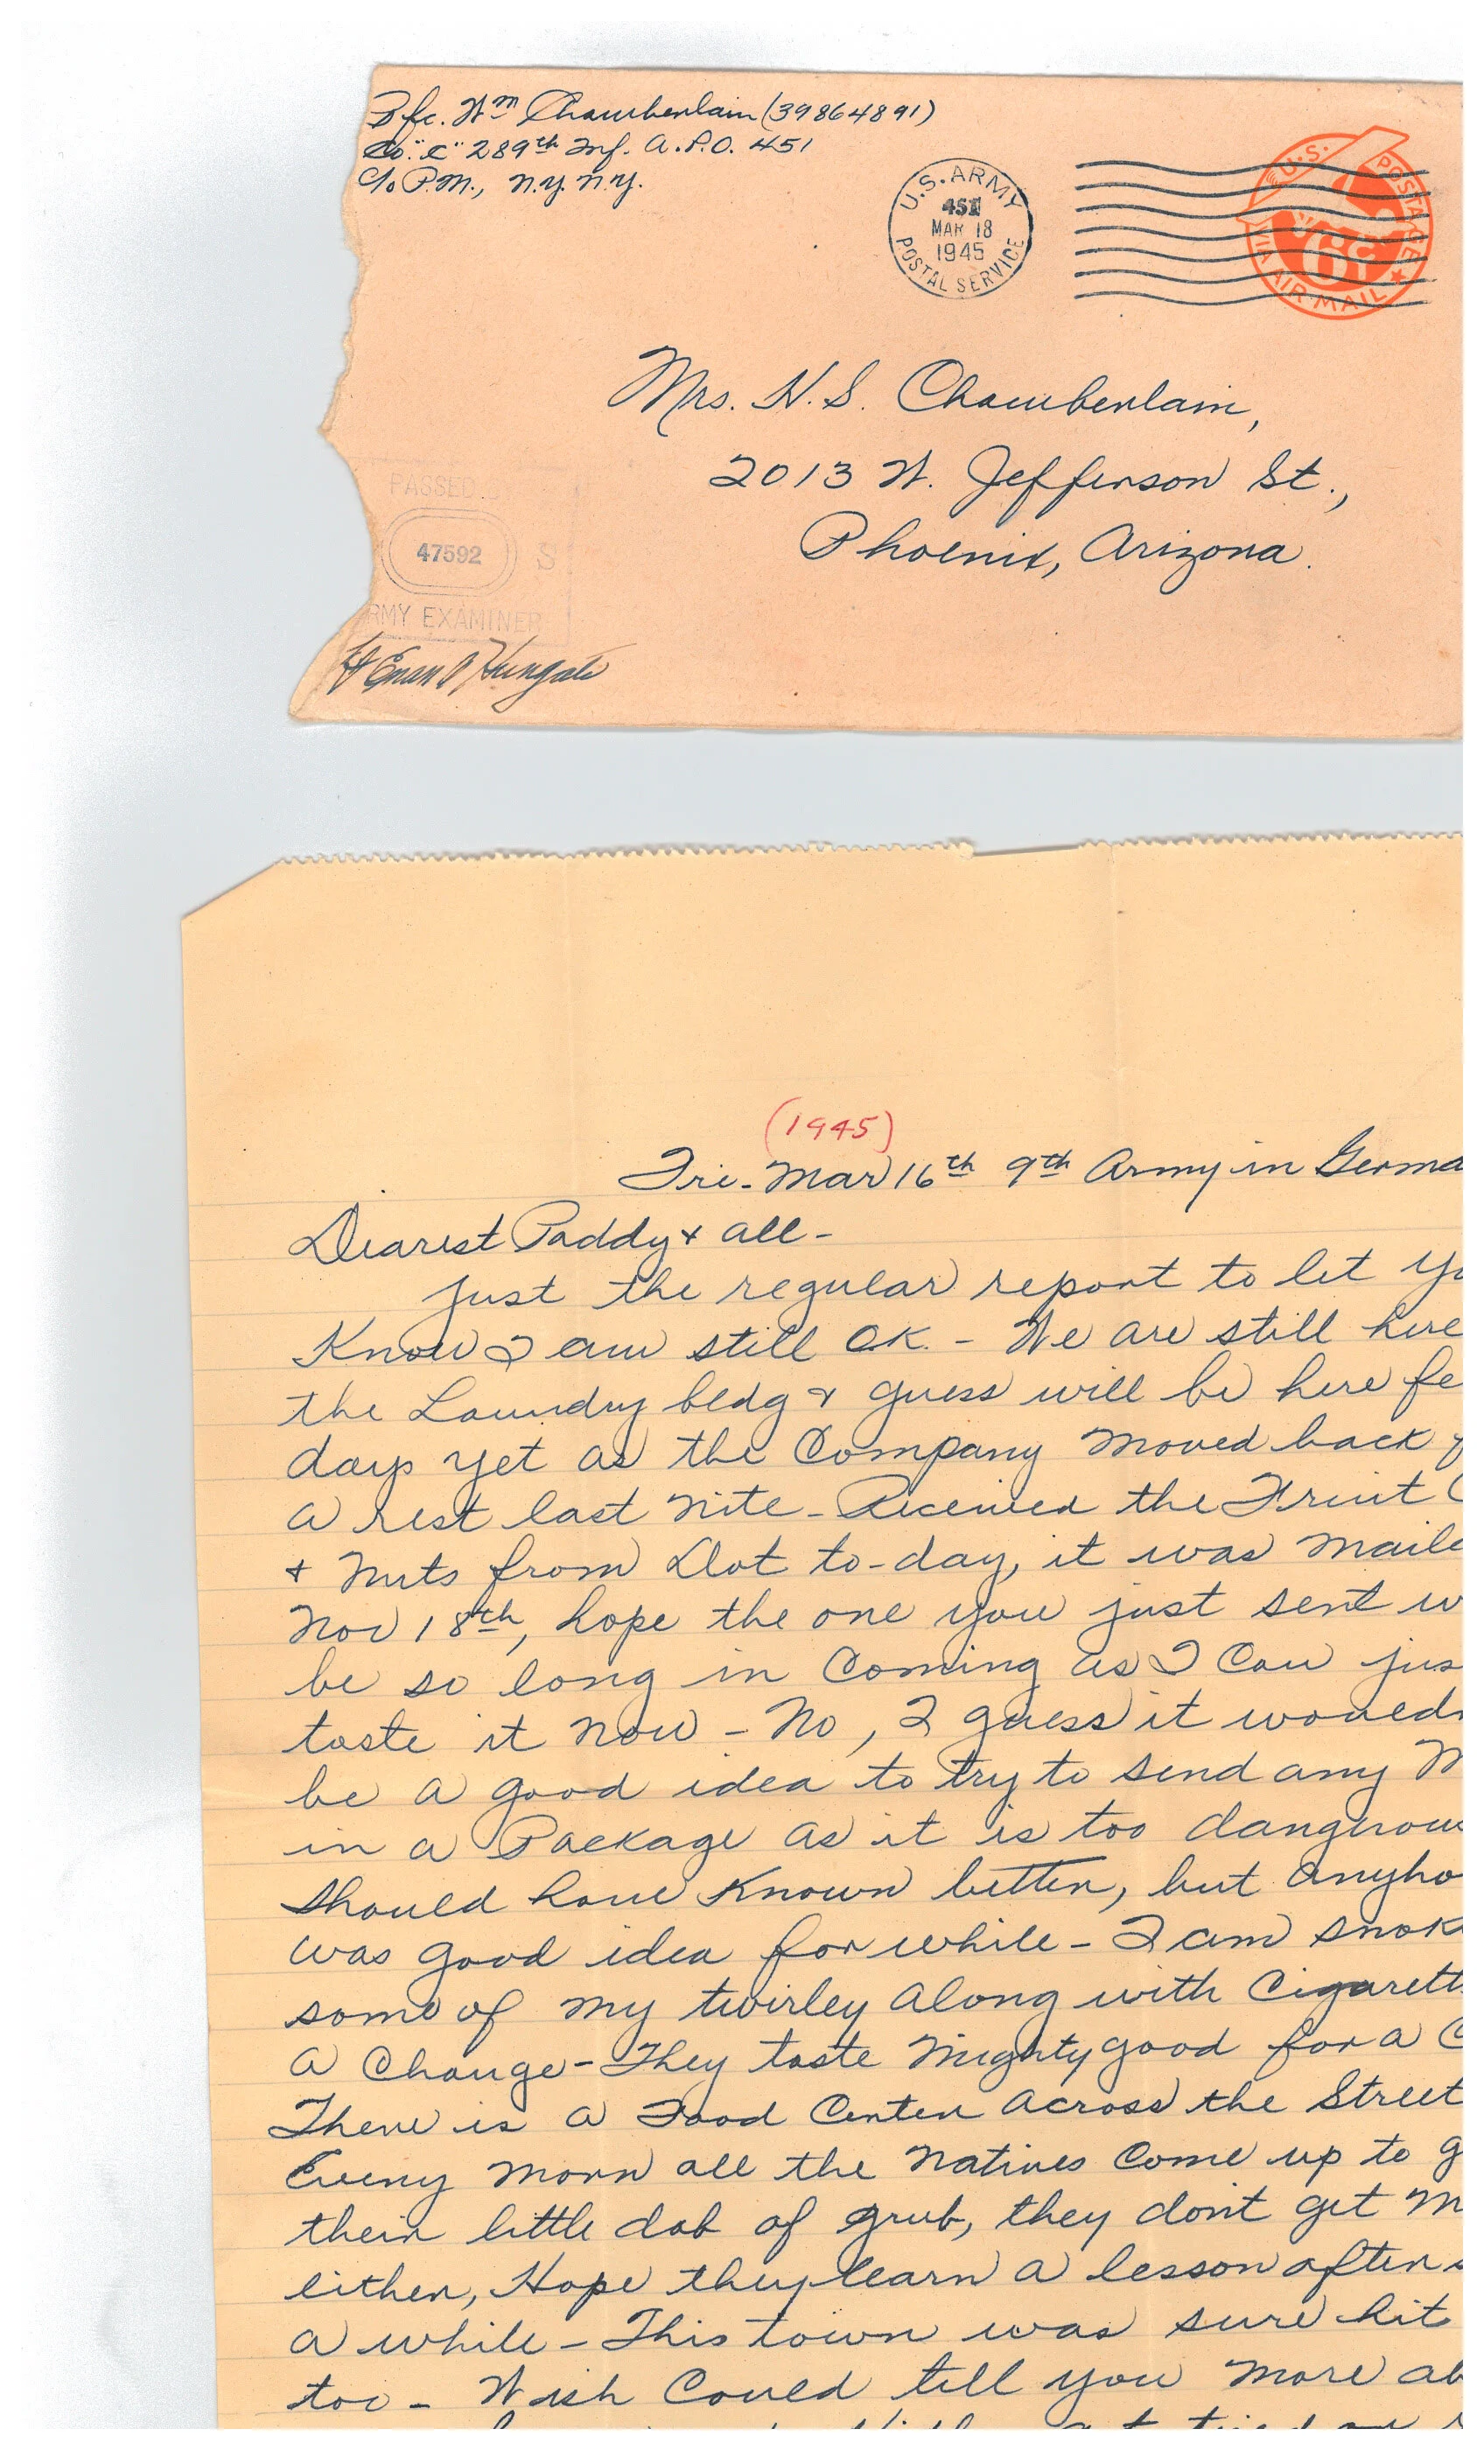 Pfc. Wm Chamberlain (39864891)
Co. "C" 289th Inf. A.P.O. 451
c/o P.M., N.Y. N.Y.
U.S. ARMY
451
MAR 18
1945
POSTAL SERVICE
U.S. POSTAGE
6¢
VIA AIR MAIL
Mrs. H. S. Chamberlain,
2013 W. Jefferson St.,
Phoenix, Arizona.
PASSED
47592 S
RMY EXAMINER
Hungate
(1945)
Fri. Mar 16th 9th Army in Germa
Dearest Paddy & all -
Just the regular report to let yo
Know I am still O.K. - We are still here
the Laundry bldg & guess will be here fe
days yet as the Company moved back f
a rest last nite - Received the Fruit C
& Nuts from Dot to-day, it was maile
Nov 18th, hope the one you just sent w
be so long in coming as I can jus
taste it now - No, I guess it would
be a good idea to try to send any M
in a Package as it is too dangerou
should have known better, but anyho
was good idea for while - I am smok
some of my twirley along with Cigarett
a change - They taste mighty good for a C
There is a Food Center across the Street
Every morn all the natives come up to g
their little dab of grub, they don't get m
either, Hope they learn a lesson after
a while - This town was sure hit
too - Wish could tell you more ab